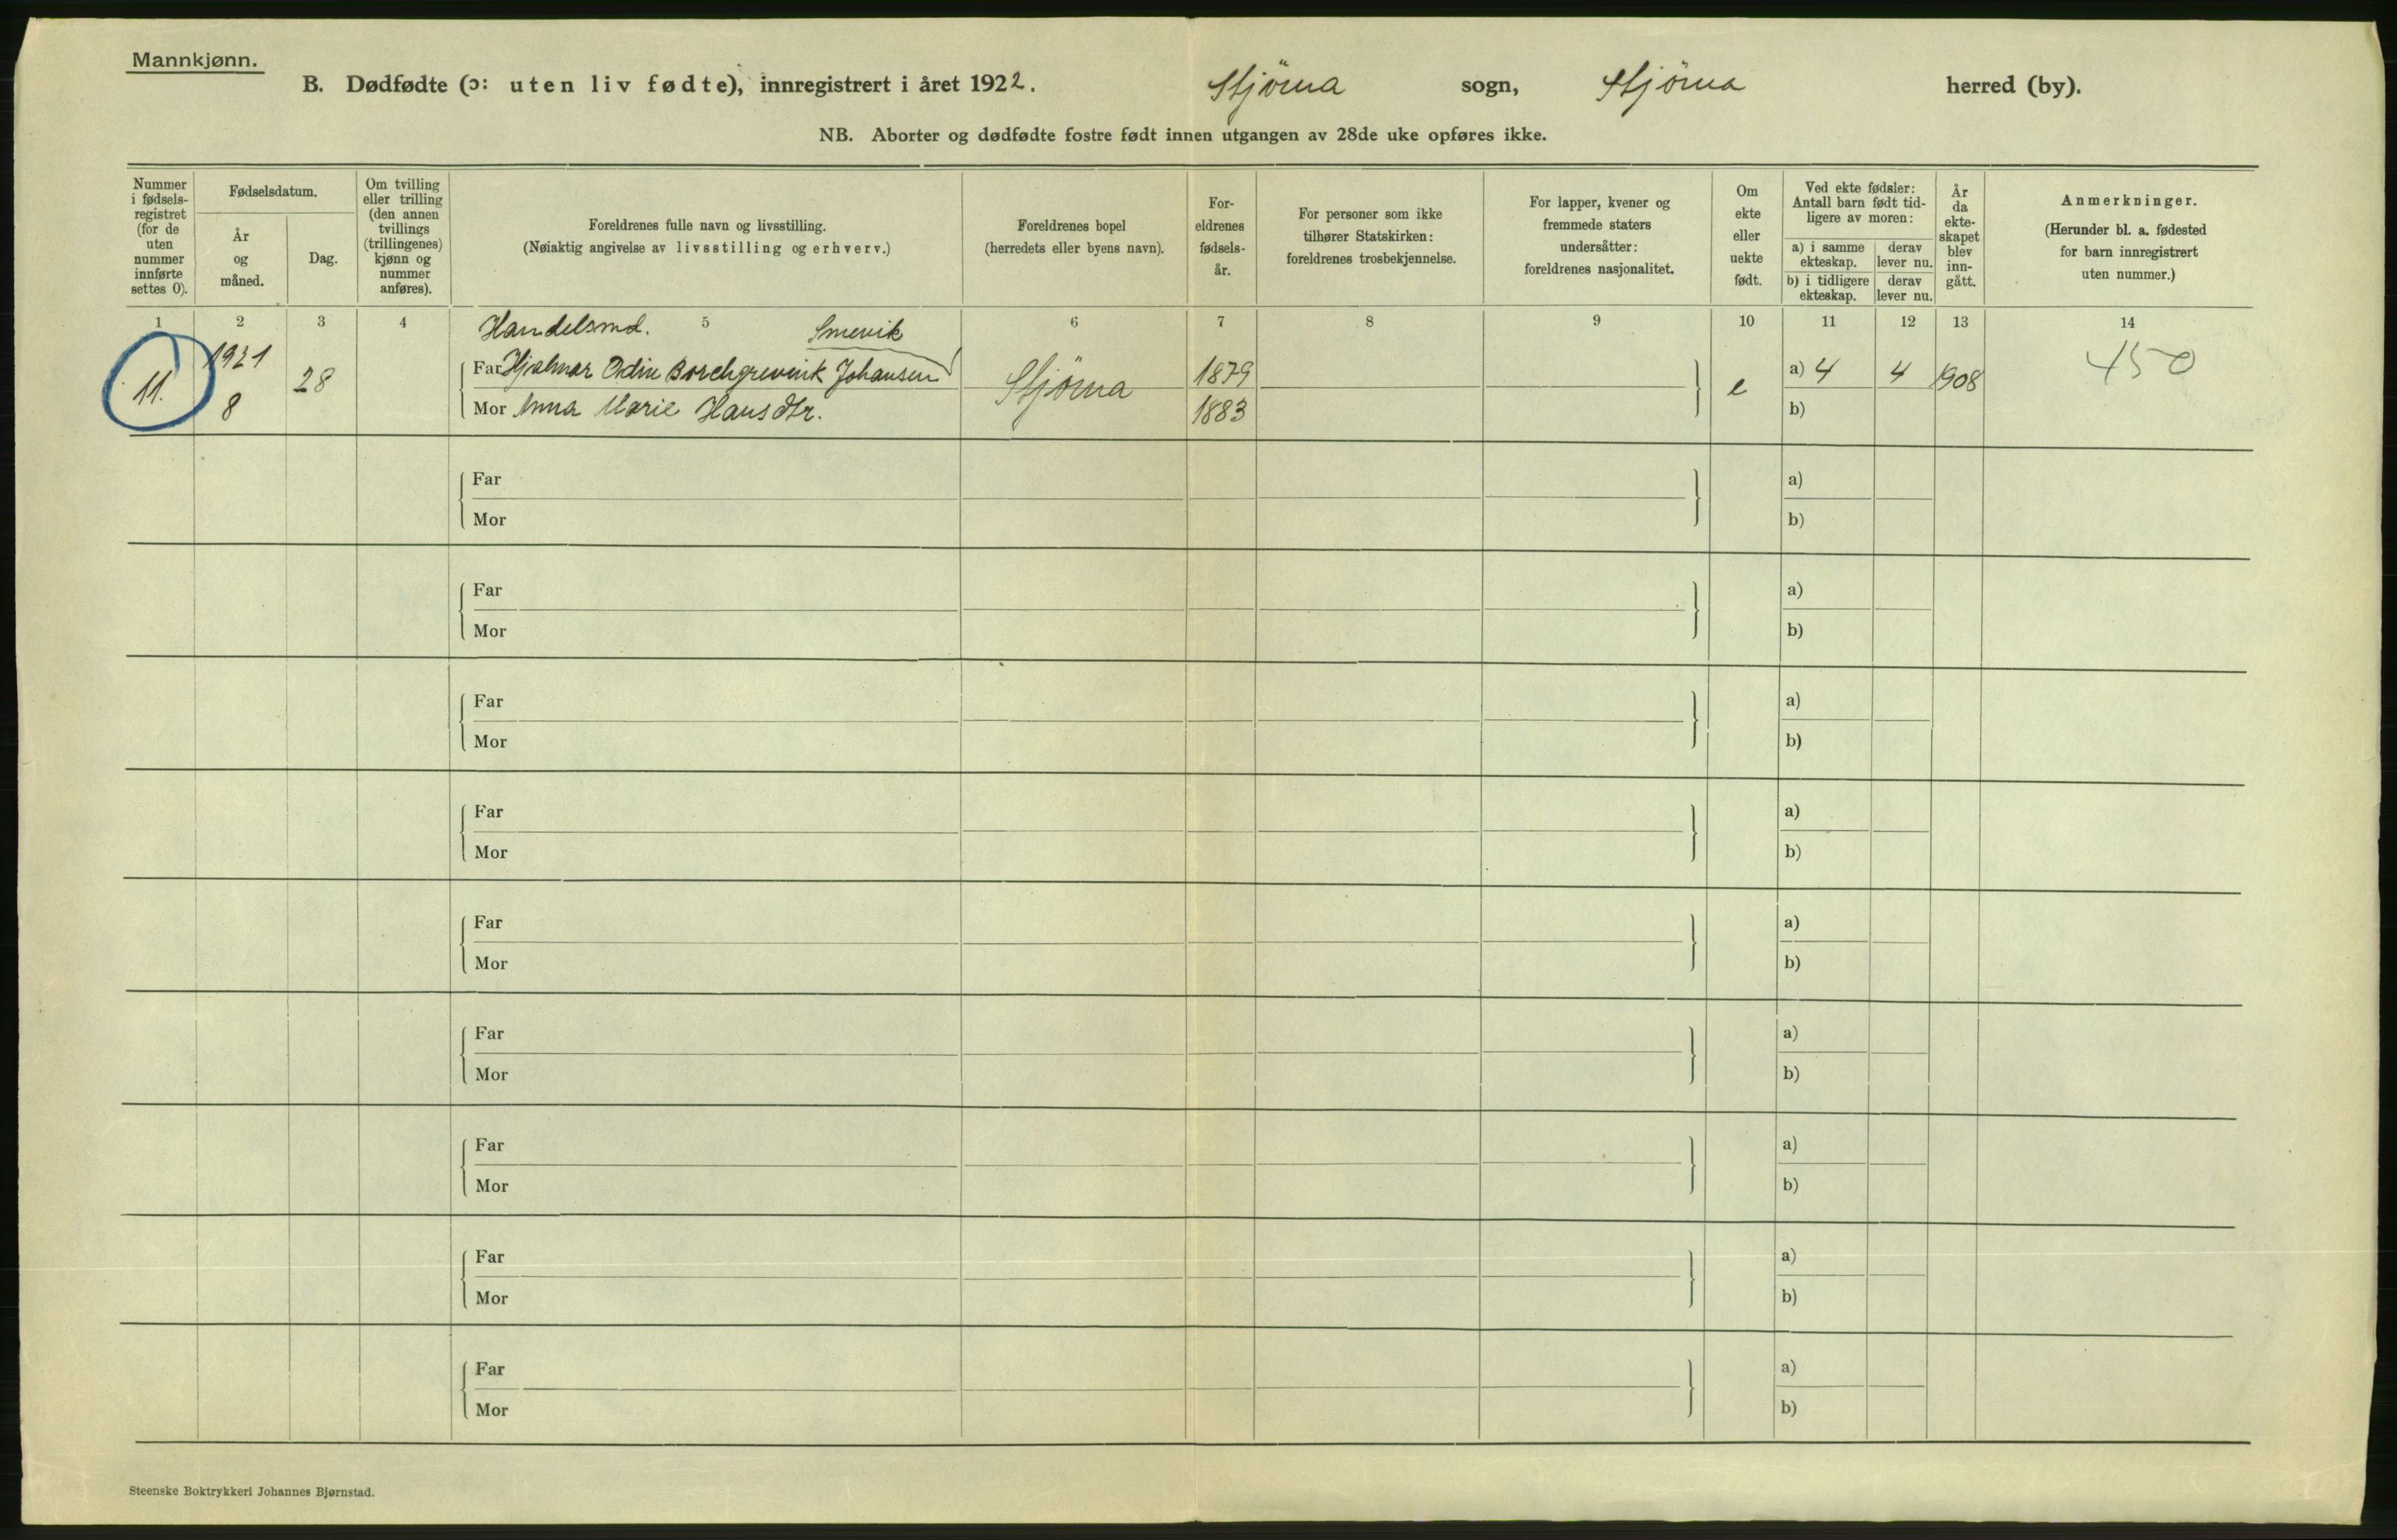 Mannkjønn.
B. Dødfødte (ɔ: uten liv fødte), innregistrert i året 1922. Stjörna sogn, Stjörna herred (by).
NB. Aborter og dødfødte fostre født innen utgangen av 28de uke opføres ikke.
Nummer i fødsels-registret (for de uten nummer innførte settes 0).
Fødselsdatum.
År og måned.
Dag.
Om tvilling eller trilling (den annen tvillings (trillingenes) kjønn og nummer anføres).
Foreldrenes fulle navn og livsstilling.
(Nøiaktig angivelse av livsstilling og erhverv.)
Foreldrenes bopel
(herredets eller byens navn).
For-eldrenes fødsels-år.
For personer som ikke tilhører Statskirken: foreldrenes trosbekjennelse.
For lapper, kvener og fremmede staters undersåtter: foreldrenes nasjonalitet.
Om ekte eller uekte født.
Ved ekte fødsler: Antall barn født tid-ligere av moren:
a) i samme ekteskap.
derav lever nu.
b) i tidligere ekteskap.
derav lever nu.
År da ekte-skapet blev inn-gått.
Anmerkninger.
(Herunder bl. a. fødested for barn innregistrert uten nummer.)
1 2 3 4 5 6 7 8 9 10 11 12 13 14
Handelsmd. Smevik
11. 1921 8 28
Far Hjalmar Odin Borchgrevink Johansen Stjörna 1879 e a) 4 4 1908 450
Mor Anna Marie Hansdtr. 1883 b)
Far a)
Mor b)
Far a)
Mor b)
Far a)
Mor b)
Far a)
Mor b)
Far a)
Mor b)
Far a)
Mor b)
Far a)
Mor b)
Far a)
Mor b)
Far a)
Mor b)
Steenske Boktrykkeri Johannes Bjørnstad.